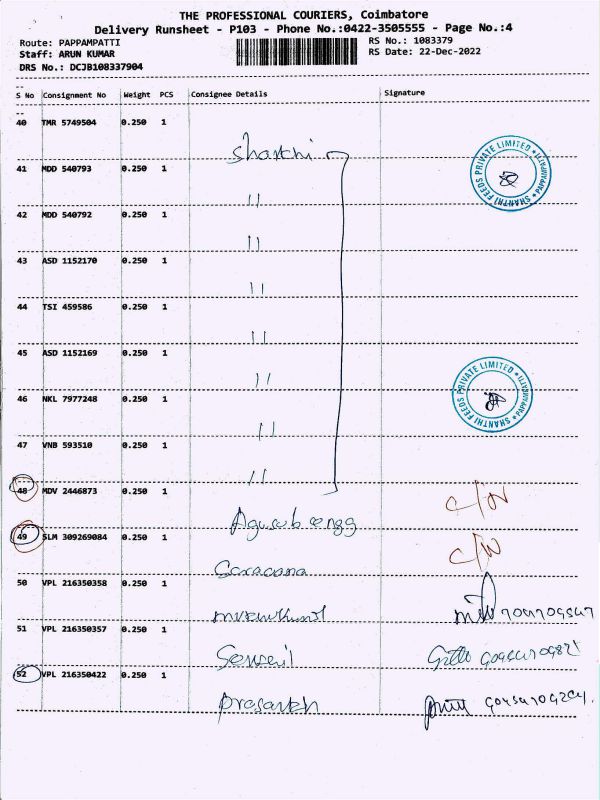 THE PROFESSIONAL COURIERS, Coimbatore
Delivery Runsheet - P103 - Phone No.:0422-3505555 - Page No.:4
Route: PAPPAMPATTI RS No.: 1083379
Staff: ARUN KUMAR RS Date: 22-Dec-2022
DRS No.: DCJB108337904
S No Consignment No Weight PCS Consignee Details Signature
40 TMR 5749504 0.250 1
Shanthi
SHANTHI FEEDS PRIVATE LIMITED * PAPPAMPATTI *
41 MDD 540793 0.250 1
"
42 MDD 540792 0.250 1
"
43 ASD 1152170 0.250 1
"
44 TSI 459586 0.250 1
"
45 ASD 1152169 0.250 1
"
SHANTHI FEEDS PRIVATE LIMITED * PAPPAMPATTI *
46 NKL 7977248 0.250 1
"
47 VNB 593510 0.250 1
"
48 MDV 2446873 0.250 1
C/N
49 SLM 309269084 0.250 1
C/N
Saravana
50 VPL 216350358 0.250 1
51 VPL 216350357 0.250 1
52 VPL 216350422 0.250 1
Prasanth